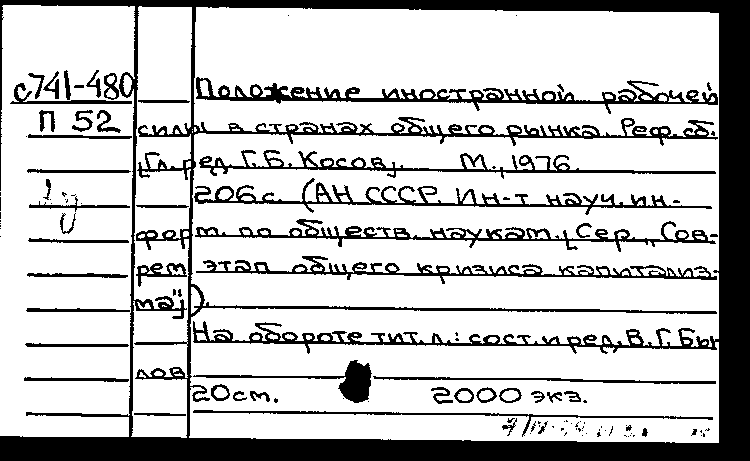 с741-480
П 52
Положение иностранной рабочей
силы в странах общего рынка. Реф. сб.
[Гл. ред. Г.Б. Косов]. М., 1976.
206 с. (АН СССР. Ин-т науч. ин-
форм. по обществ. наукам. [Сер. „Сов-
рем. этап общего кризиса капитализ-
ма"]).
На обороте тит. л.: сост. и ред. В.Г. Бы
лов
20 см. 2000 экз.